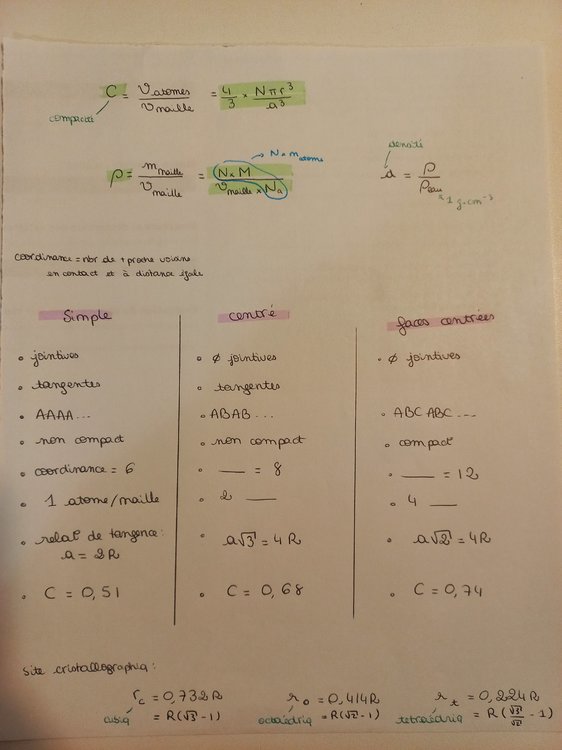 C = V atomes / V maille = 4/3 × Nπr³ / a³
compacité
→ N × m atome
ρ = m maille / V maille = N × M / V maille × Na
densité
d = ρ / ρ eau
= 1 g.cm⁻³
coordinance = nbr de + proche voisins
en contact et à distance égale
Simple
• jointives
• tangentes
• AAAA...
• non compact
• coordinance = 6
• 1 atome/maille
• relat° de tangence :
a = 2R
• C = 0,51
centré
• ∅ jointives
• tangentes
• ABAB...
• non compact
• — = 8
• 2 —
• a√3 = 4R
• C = 0,68
faces centrées
• ∅ jointives
• ABC ABC...
• compact
• — = 12
• 4 —
• a√2 = 4R
• C = 0,74
site cristallographiq :
r c = 0,732R
cubiq = R(√3 - 1)
r o = 0,414R
octaédriq = R(√2 - 1)
r t = 0,224R
tetraédriq = R(√3/√2 - 1)